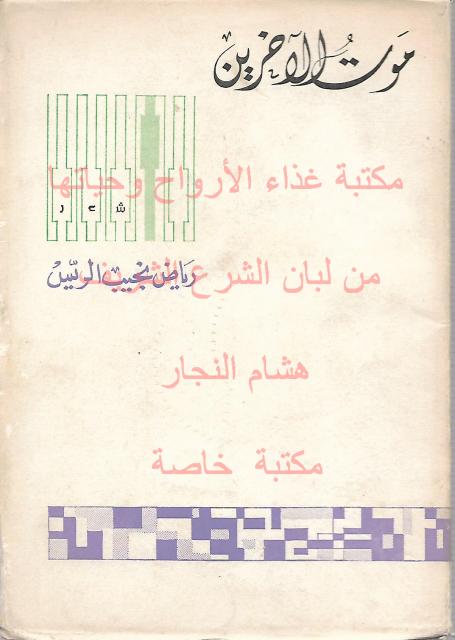 مَوتُ الآخرين
مكتبة غذاء الأرواح وحياتها
ش ع ر
من لبان الشرع الشريف
رياض نجيب الريّس
هشام النجار
مكتبة خاصة